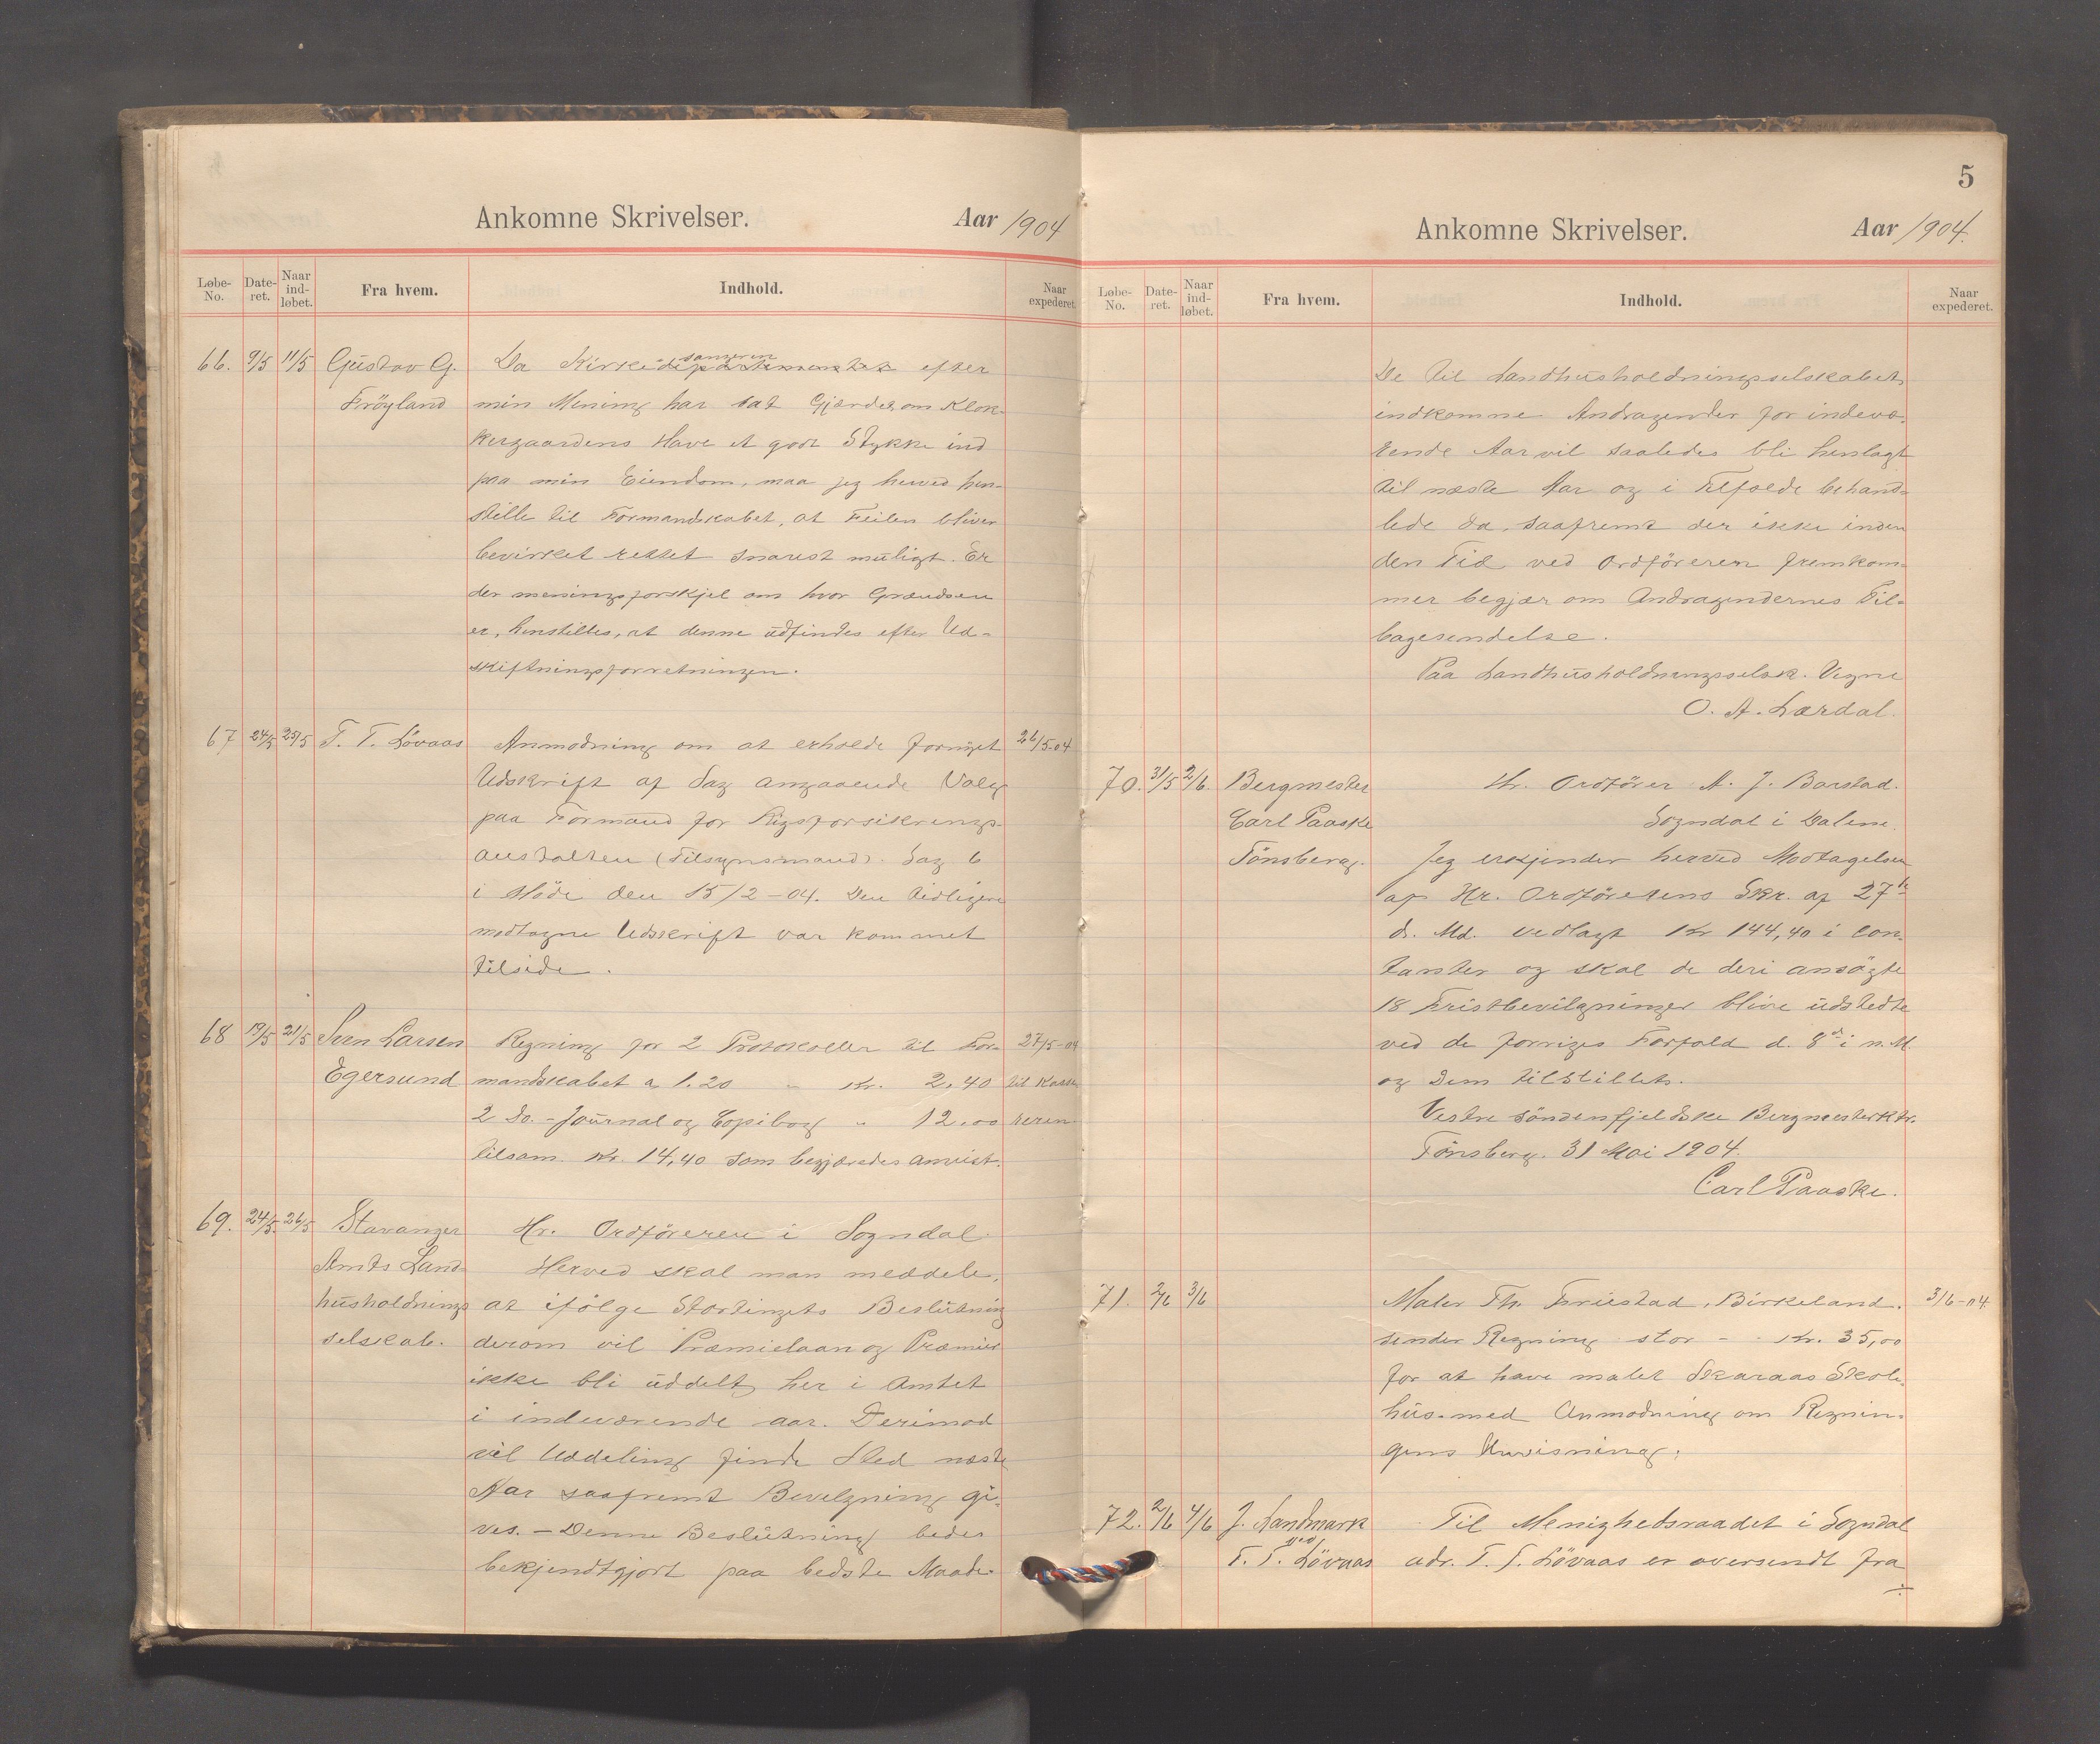 Ankomne Skrivelser. Aar 1904
Løbe-No. Date-ret. Naar ind-løbet. Fra hvem. Indhold. Naar expederet.
66. 9/5 11/5 Gustav G. Da Kirkesangeren efter
Fröyland min Mening har sat Gjærdet om Klok-
kergaardens Have et godt Stykke ind
paa min Eiendom, maa jeg herved hen-
stille til Formandskabet, at Feilen bliver
bevirket rettet snarest muligt. Er
der meningsforskjel om hvor Grændsen
er, henstilles, at denne udfindes efter Ud-
skiftningsforretningen.
67 24/5 25/5 T. T. Lövaas Anmodning om at erholde fornyet 26/5-04
Udskrift af Sag angaaende Valg
paa Formand for Rigsforsikrings-
anstalten (Tilsynsmand). Sag 6
i Möde den 15/2-04. Den tidligere
modtagne Udskrift var kommet
tilside.
68 19/5 21/5 Sven Larsen Regning for 2 Protokoller til For- 27/5-04
Egersund mandskabet a 1.20 " Kr. 2,40 til Kasse-
2 Do. - Journal og Copibog " 12.00 reren
tilsam. Kr. 14,40 som begjæredes anvist.
69. 24/5. 26/5 Stavanger Hr. Ordföreren i Sogndal.
Amts Land- Herved skal man meddele,
husholdnings at ifölge Stortingets Beslutning
selskab. derom vil Præmielaan og Præmier
ikke bli uddelt her i Amtet
i indeværende aar. Derimod
vil Uddeling finde Sted næste
Aar saafremt Bevilgning gi-
ves. - Denne Beslutning bedes
bekjendtgjort paa bedste Maade.
5
Ankomne Skrivelser. Aar 1904.
Løbe-No. Date-ret. Naar ind-løbet. Fra hvem. Indhold. Naar expederet.
De til Landhusholdningsselskabet
indkomne Andragender for indevæ-
rende Aar vil saaledes bli henlagt
til næste Aar og i Tilfælde behand-
lede da, saafremt der ikke inden
den Tid ved Ordföreren fremkom-
mer begjær om Andragendernes Til-
bagesendelse.
Paa Landhusholdningsselsk. Vegne
O. A. Lærdal.
70. 31/5 2/6. Bergmester Hr. Ordförer A. J. Barstad.
Carl Paaske Sogndal i Dalene.
Tönsberg. Jeg erkjender herved Modtagelsen
af Hr. Ordförerens Skr. af 27de
ds. Md. vedlagt Kr 144,40 i con-
tanter og skal de deri ansögte
18 Fristbevilgninger blive udstedte
ved de forriges Forfald d. 8de i n. M.
og Dem tilstillet.
Vestre söndenfjeldske Bergmesterktr.
Tönsberg. 31 Mai 1904.
Carl Paaske.
71. 2/6 3/6 Maler Th. Friestad, Birkeland. 3/6-04.
sender Regning stor - - Kr. 35,00
for at have malet Skaraas Skole-
hus med Anmodning om Regnin-
gens Anvisning.
72. 2/6 4/6 J. Landmark Til Menighedsraadet i Sogndal
ved
T. T. Lövaas adr. T. T. Lövaas er oversendt fra